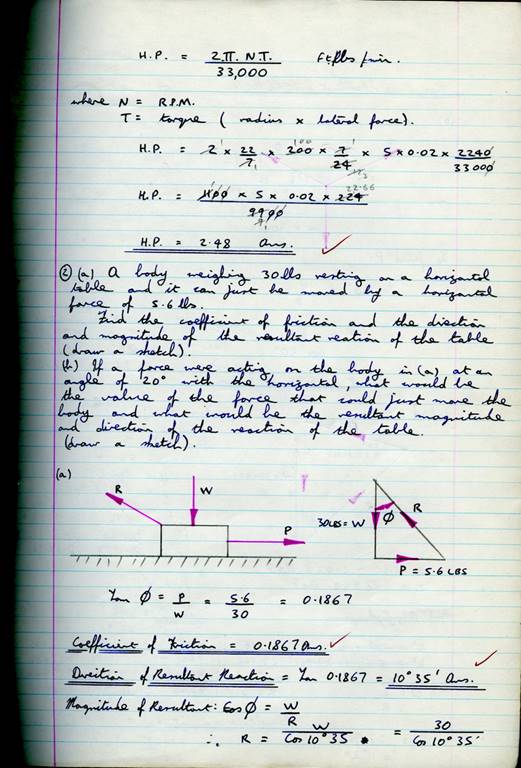 H.P. = 2.π. N.T. / 33,000 Ft lbs/min.
where N = R.P.M.
T = torque ( radius x lateral force ).
H.P. = 2 x 22/7 x 200 x 7/24 x 5 x 0.02 x 2240/33000
H.P. = 1100 x 5 x 0.02 x 224 / 9900
22.66
H.P. = 2.48 Ans.
② (a) A body weighing 30 lbs resting on a horizontal
table and it can just be moved by a horizontal
force of 5.6 lbs.
Find the coefficient of friction and the direction
and magnitude of the resultant reation of the table
(draw a sketch).
(b) If a force were acting on the body in (a) at an
angle of 20° with the horizontal, what would be
the value of the force that could just move the
body and what would be the resultant magnitude
and direction of the reaction of the table.
(draw a sketch).
(a)
R W P
30LBS = W ϕ R
P = 5.6 LBS
Tan ϕ = P/W = 5.6/30 = 0.1867
Coefficient of Friction = 0.1867 Ans.
Direction of Resultant Reaction = Tan 0.1867 = 10° 35' Ans.
Magnitude of Resultant: Cos ϕ = W/R
∴ R = W / Cos 10° 35 = 30 / Cos 10° 35'